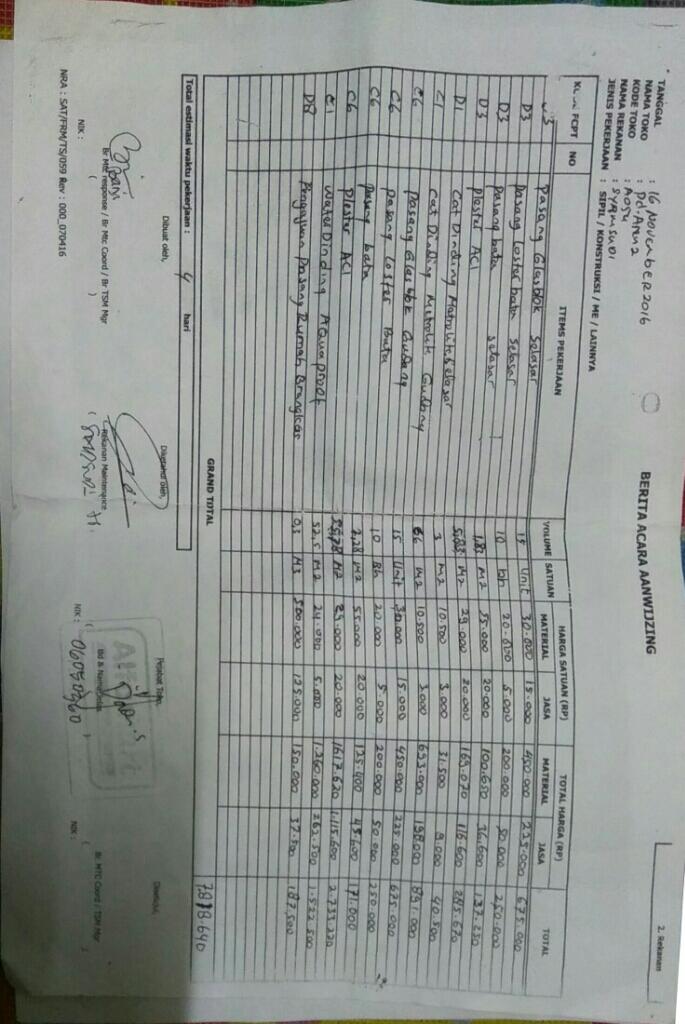 2. Rekanan
BERITA ACARA AANWIJZING
TANGGAL : 16 NOVEMBER 2016
NAMA TOKO : Pd. Aren 2
KODE TOKO : A051
NAMA REKANAN : SYAMSUDI
JENIS PEKERJAAN : SIPIL / KONSTRUKSI / ME / LAINNYA
FCPT NO ITEMS PEKERJAAN VOLUME SATUAN HARGA SATUAN (RP) TOTAL HARGA (RP) TOTAL
MATERIAL JASA MATERIAL JASA
Pasang Glasblok Selasar 15 Unit 30.000 15.000 450.000 225.000 675.000
D3 Pasang Loster bata Selasar 10 bh 20.000 5.000 200.000 50.000 250.000
D3 Pasang bata selasar
D3 Plester ACI 1,83 M2 55.000 20.000 100.650 36.600 137.250
D1 Cat Dinding Metrolite Selasar 5,83 M2 29.000 20.000 169.070 116.600 285.670
C1 Cat Dinding Metrolite Gudang 3 M2 10.500 3.000 31.500 9.000 40.500
C6 Pasang Glasblok Gudang 66 M2 10.500 3.000 693.000 198.000 891.000
C6 Pasang Loster Bata 15 Unit 30.000 15.000 450.000 225.000 675.000
C6 Pasang bata 10 Bh 20.000 5.000 200.000 50.000 250.000
C6 Plester ACI 2,28 M2 55.000 20.000 125.400 45.600 171.000
C1 Water Dinding Aquaproof 55,78 M2 29.000 20.000 1.617.620 1.115.600 2.733.220
52,5 M2 24.000 5.000 1.260.000 262.500 1.522.500
D8 Pengajuan Pasang Rumah Brangkas 0,3 M3 500.000 125.000 150.000 37.500 187.500
GRAND TOTAL 7.818.640
Total estimasi waktu pekerjaan : 4 hari
Dibuat oleh, Diketahui oleh, Pejabat Toko, Disetujui,
Br Mtc response / Br Mtc Coord / Br TSM Mgr
Rekanan Maintenance
Br MTC Coord / TSM Mgr
NIK : NIK : 06050360 NIK :
NRA : SAT/FRM/TS/059 Rev : 000_070416